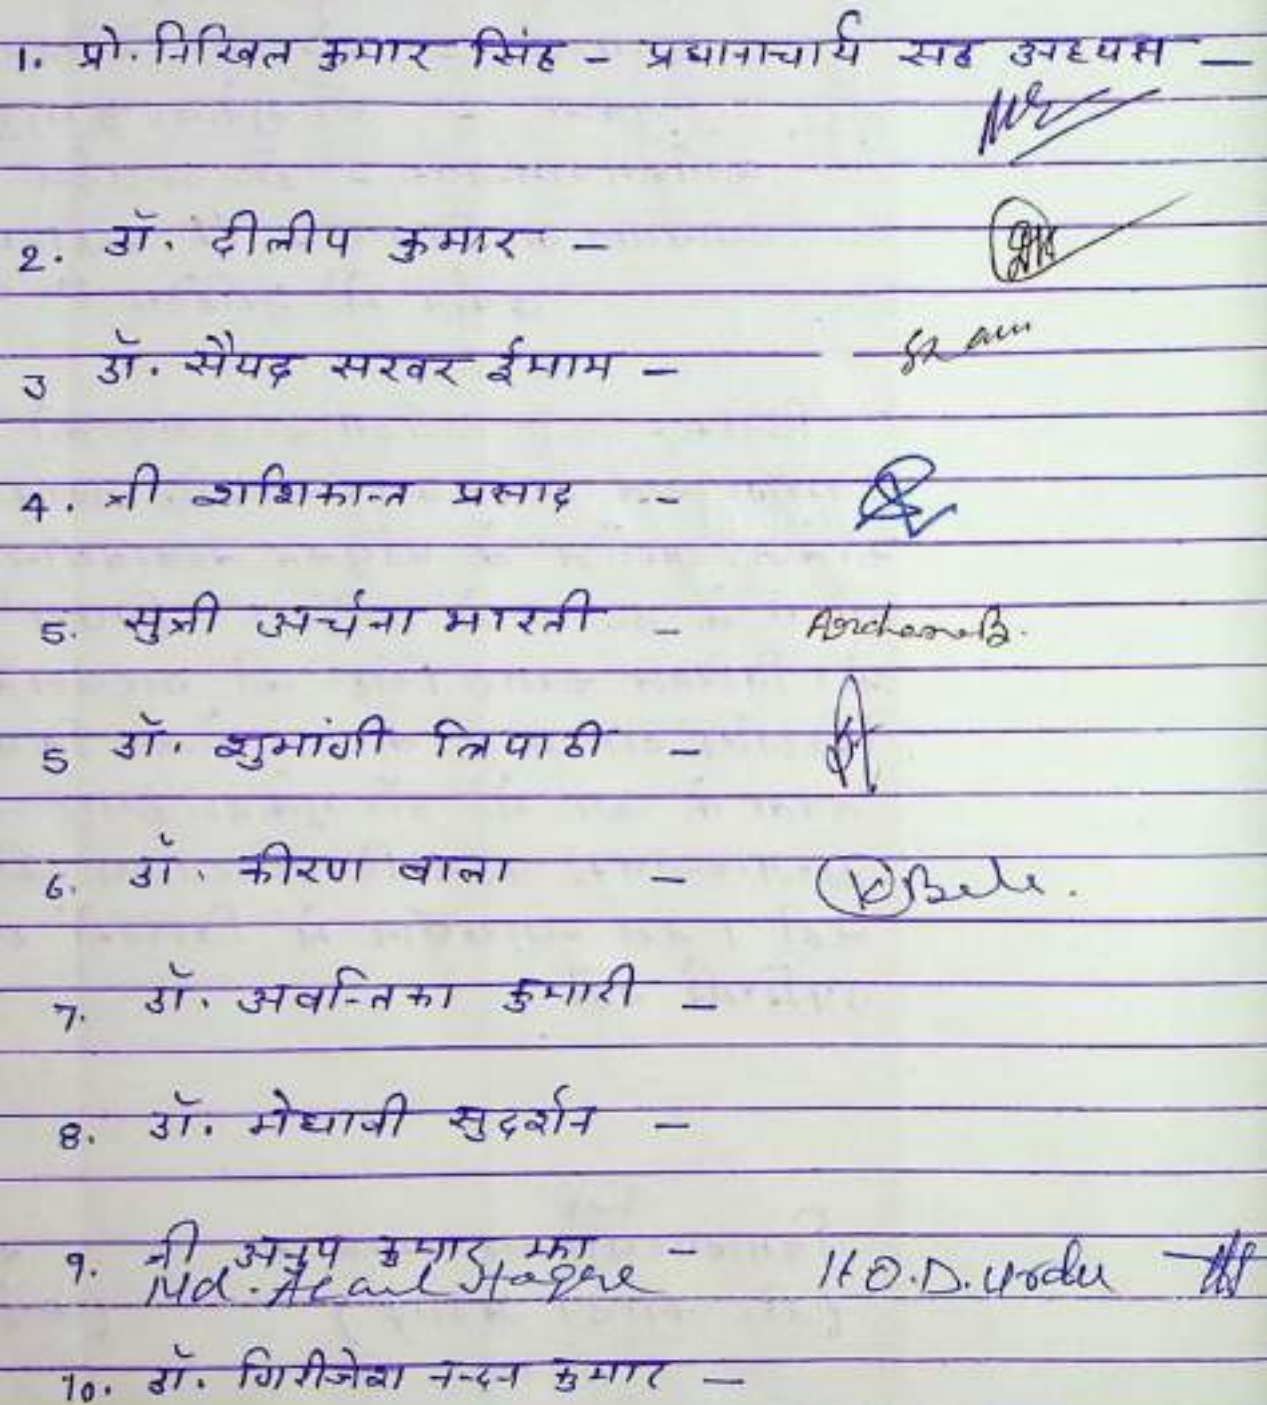 1. प्रो. निखिल कुमार सिंह - प्रधानाचार्य सह अध्यक्ष -
2. डॉ. दीलीप कुमार -
3 डॉ. सैयद सरवर ईमाम -
4. श्री शशिकान्त प्रसाद --
5. सुश्री अर्चना भारती - Archana B.
5 डॉ. शुभांगी त्रिपाठी -
6. डॉ. कीरण बाला - K Bala.
7. डॉ. अवन्तिका कुमारी -
8. डॉ. मेधावी सुदर्शन -
9. श्री अनुप कुमार झा -
Md. H.O.D. Urdu
10. डॉ. गिरीजेश नन्दन कुमार -